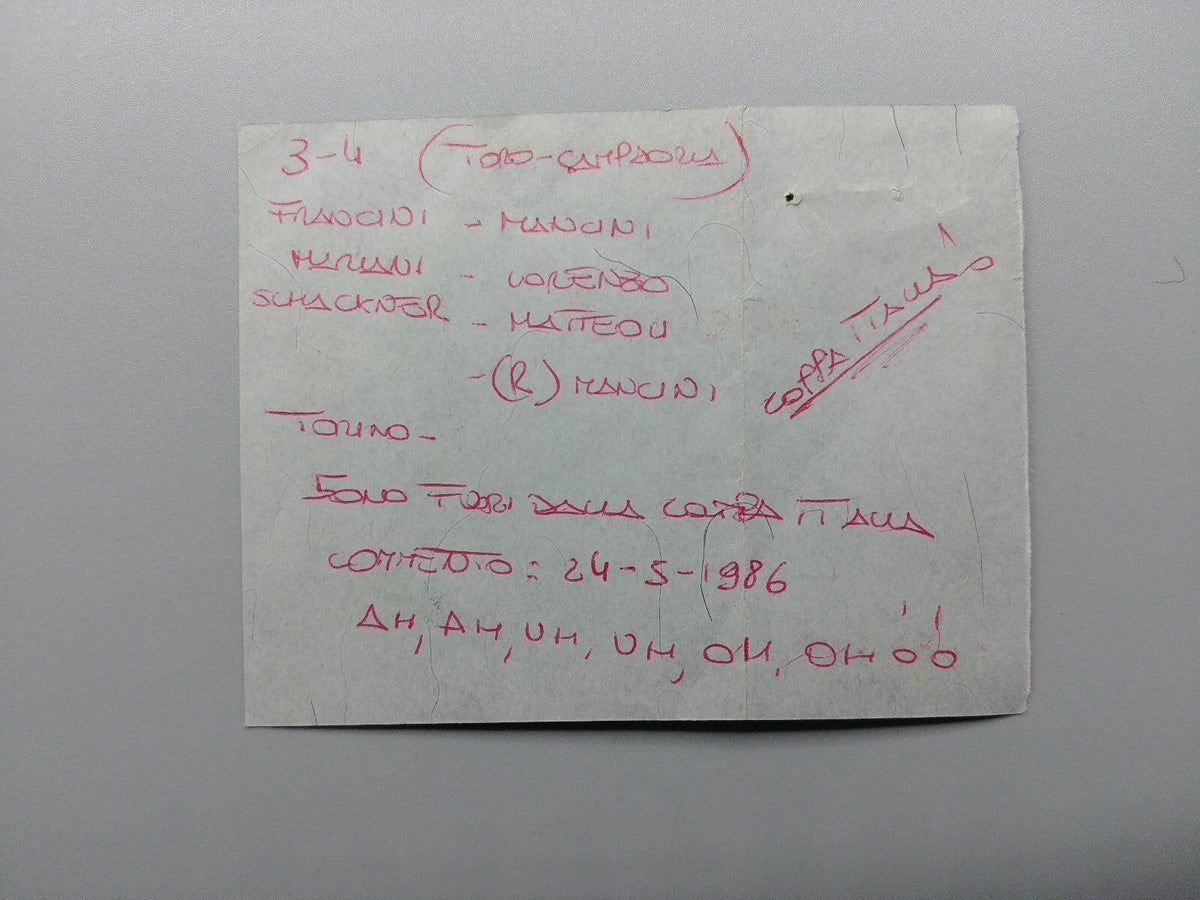 3-4 (TORO-SAMPDORIA)
FRANCINI - MANCINI
MARIANI - LORENZO
SCHACKNER - MATTEOLI
-(R) MANCINI
COPPA ITALIA!
TORINO-
SONO FUORI DALLA COPPA ITALIA
COMMENTO: 24-5-1986
AH, AH, UH, UH, OH, OH!!